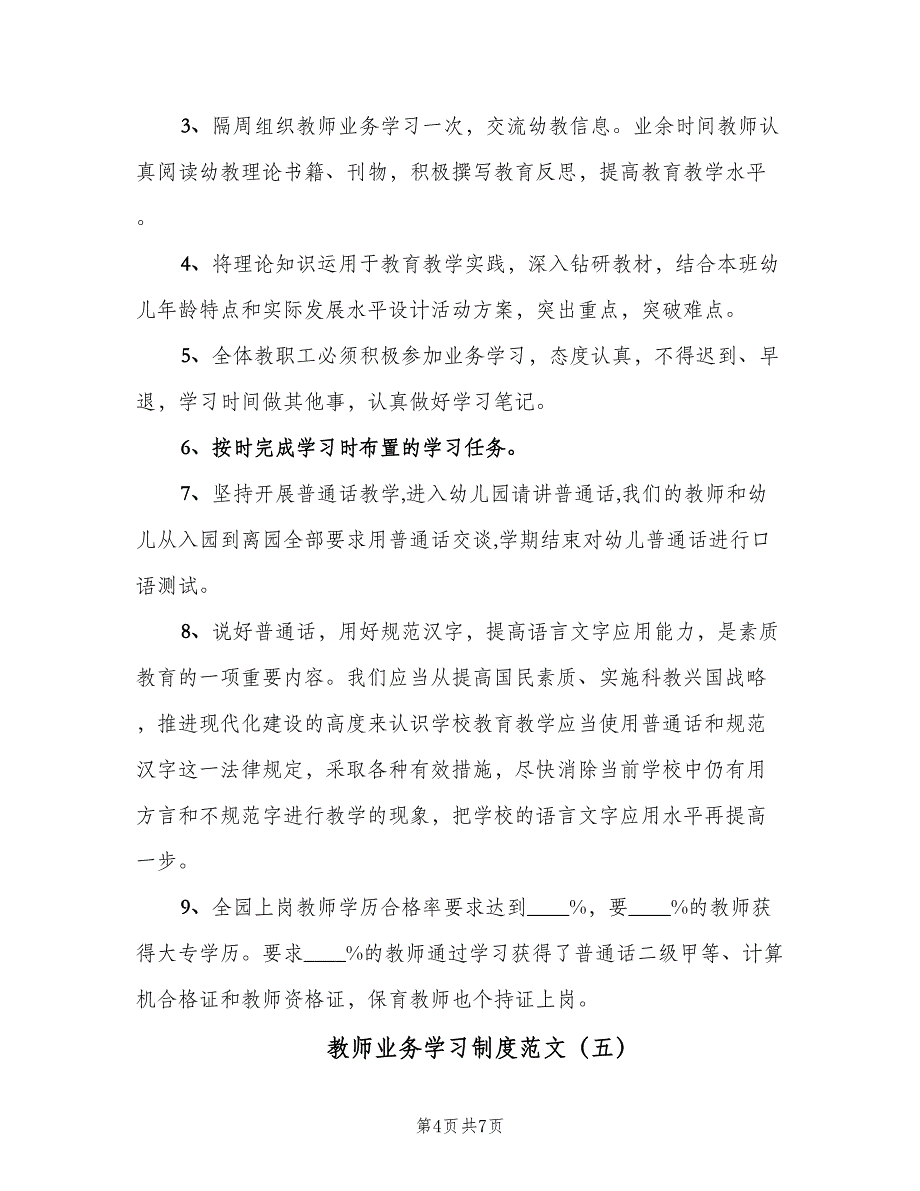 3、隔周组织教师业务学习一次，交流幼教信息。业余时间教师认
真阅读幼教理论书籍、刊物，积极撰写教育反思，提高教育教学水平
。
4、将理论知识运用于教育教学实践，深入钻研教材，结合本班幼
儿年龄特点和实际发展水平设计活动方案，突出重点，突破难点。
5、全体教职工必须积极参加业务学习，态度认真，不得迟到、早
退，学习时间做其他事，认真做好学习笔记。
6、按时完成学习时布置的学习任务。
7、坚持开展普通话教学,进入幼儿园请讲普通话,我们的教师和幼
儿从入园到离园全部要求用普通话交谈,学期结束对幼儿普通话进行口
语测试。
8、说好普通话，用好规范汉字，提高语言文字应用能力，是素质
教育的一项重要内容。我们应当从提高国民素质、实施科教兴国战略
，推进现代化建设的高度来认识学校教育教学应当使用普通话和规范
汉字这一法律规定，采取各种有效措施，尽快消除当前学校中仍有用
方言和不规范字进行教学的现象，把学校的语言文字应用水平再提高
一步。
9、全园上岗教师学历合格率要求达到____%，要____%的教师获
得大专学历。要求____%的教师通过学习获得了普通话二级甲等、计算
机合格证和教师资格证，保育教师也个持证上岗。
教师业务学习制度范文（五）
第4页共7页